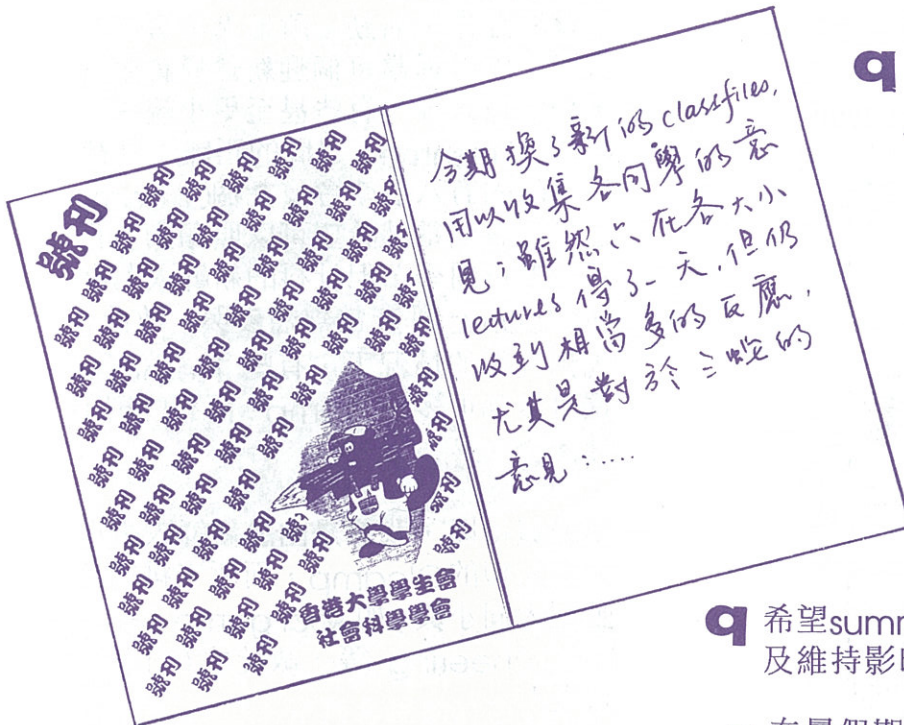 號刊
號刊 號刊 號刊 號刊 號刊 號刊
香港大學學生會
社會科學學會
今期換了新的classfiles,
用以收集各同學的意
見；雖然只在各大小
lectures傳了一天,但仍
收到相當多的反應,
尤其是對於三的
意見:.....
q
q 希望summ
及維持影印
在暑假期